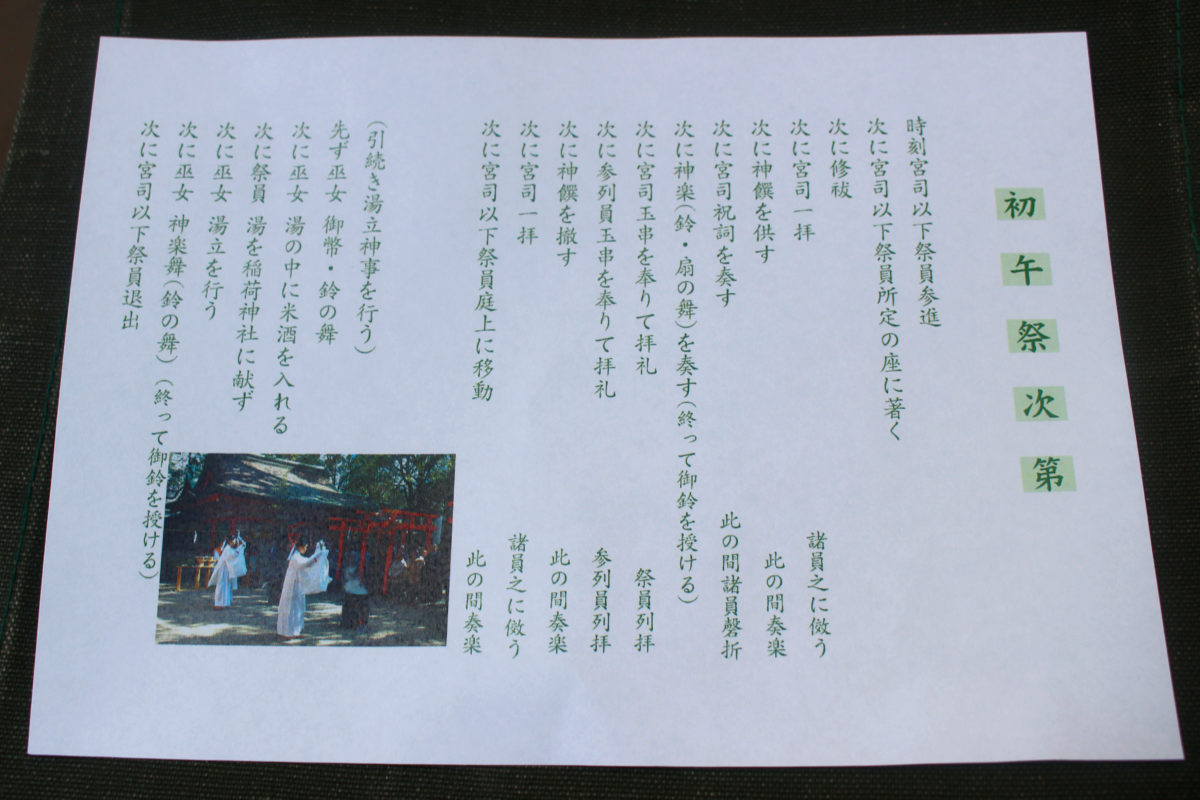 初午祭次第
時刻宮司以下祭員参進
次に宮司以下祭員所定の座に著く
次に修祓
次に宮司一拝 諸員之に倣う
次に神饌を供す 此の間奏楽
次に宮司祝詞を奏す 此の間諸員磬折
次に神楽(鈴・扇の舞)を奏す(終って御鈴を授ける)
次に宮司玉串を奉りて拝礼 祭員列拝
次に参列員玉串を奉りて拝礼 参列員列拝
次に神饌を撤す 此の間奏楽
次に宮司一拝 諸員之に倣う
次に宮司以下祭員庭上に移動 此の間奏楽
(引続き湯立神事を行う)
先ず巫女 御幣・鈴の舞
次に巫女 湯の中に米酒を入れる
次に祭員 湯を稲荷神社に献ず
次に巫女 湯立を行う
次に巫女 神楽舞(鈴の舞)(終って御鈴を授ける)
次に宮司以下祭員退出